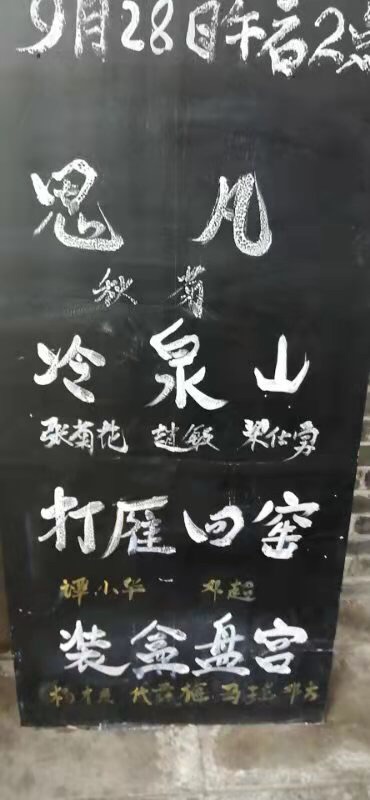 9月28日午后2点
思凡
秋菊
冷泉山
张菊花 赵敏 梁仕勇
打雁回窑
谭小华 邓超
装盒盘宫